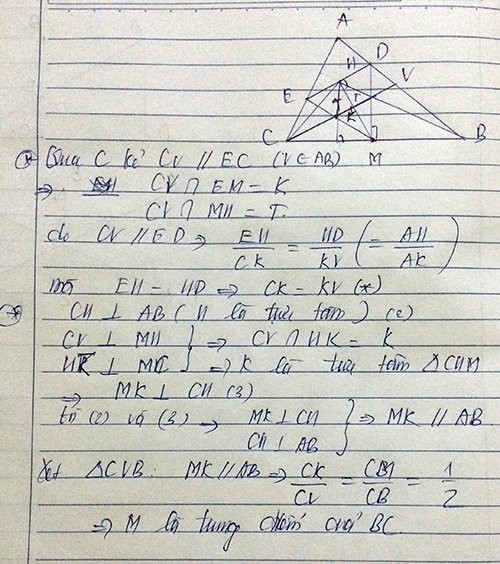 A
D
H
V
E
T
K
C
M
B
* Qua C kẻ CV // EC (V ∈ AB)
⇒ CV ∩ EM = K
CV ∩ MH = T.
do CV // ED ⇒ EH/CK = HD/KV (= AH/AK)
mà EH = HD ⇒ CK = KV (*)
* CH ⊥ AB (H là trực tâm) (2)
CV ⊥ MH } ⇒ CV ∩ HK = K
HK ⊥ MC } ⇒ K là trực tâm ΔCHM
⇒ MK ⊥ CH (3)
từ (2) và (3) ⇒ MK ⊥ CH } ⇒ MK // AB
CH ⊥ AB
Xét ΔCVB: MK // AB ⇒ CK/CV = CM/CB = 1/2
⇒ M là trung điểm của BC